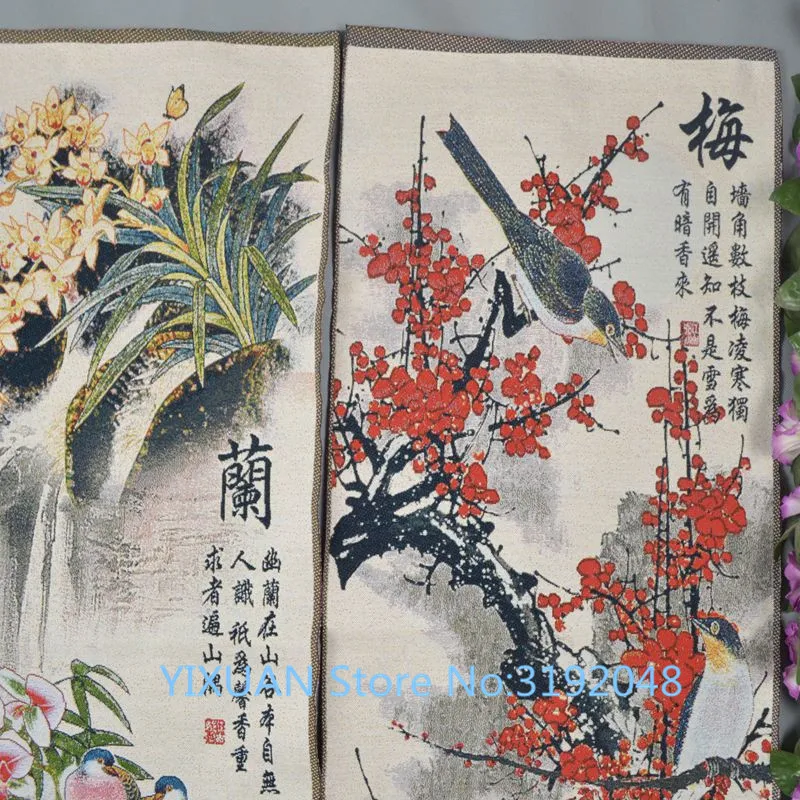 梅
墻角數枝梅凌寒獨
自開遥知不是雪爲
有暗香來
蘭
幽蘭在山谷本自無
人識祇爲馨香重
求者遍山隅
YIXUAN Store No:3192048